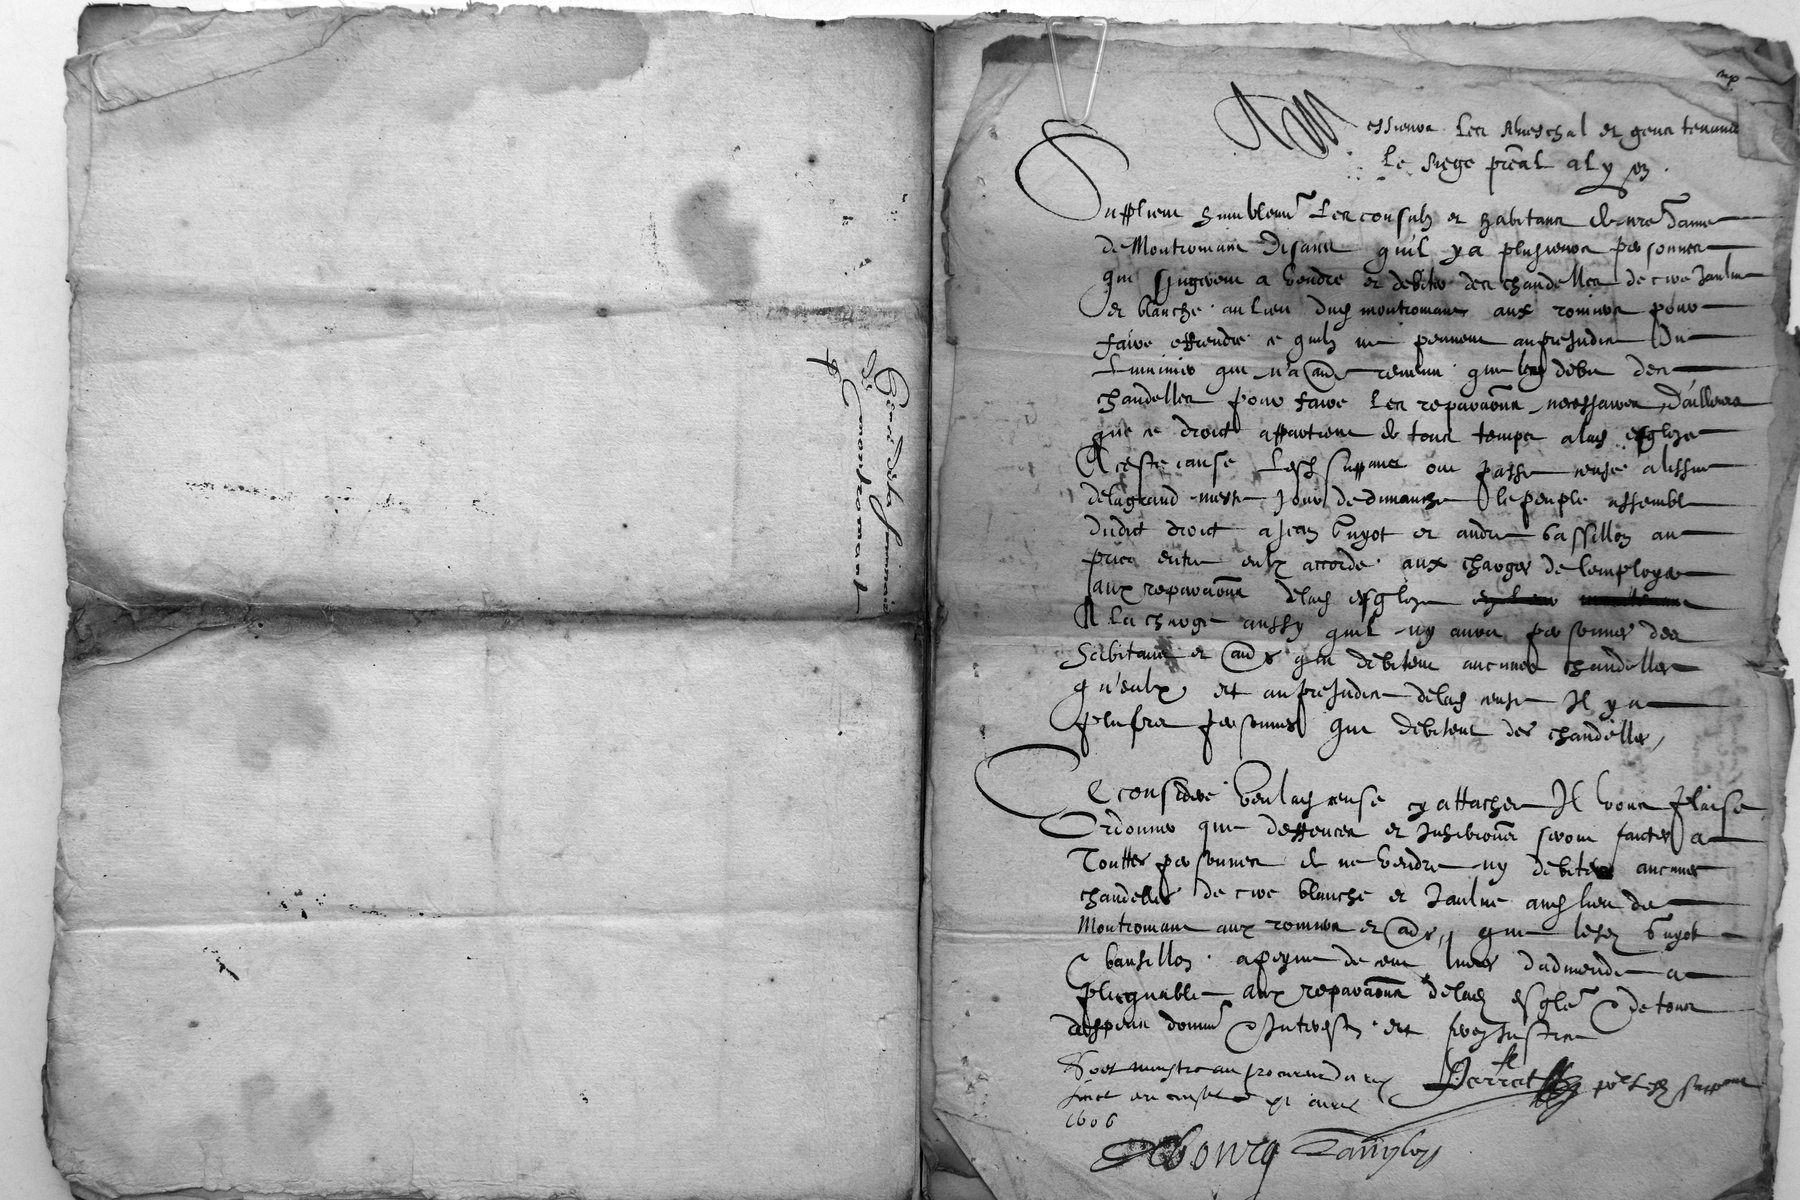 A Messieurs les seneschal et gens tenants
le siege pñal a lyon.
Supplient humblemt les consulz et habitans de nre dame
de Montromain disantz quil y a plusieurs personnes
qui singerent a vendre et debiter des chandelles de cire Jaulne
et blanche au lieu dud montromain aux romiers pour
faire offrende ce quilz ne peuvent au preJudice du
luminier qui n'a autre revenu que led debit des
chandelles pour faire les reparaons necessaires, d'ailleurs
que ce droict appartient de tous temps a lad esglize
A ceste cause lesd supptz ont passé cense a lissue
de la grand messe Jour de dimanche le peuple assemblé
dudit droict a Jean Guyot et andre bassillon au
pris entre eulx accordé aux charges de lemployer
aux reparaons de lad esglize
A la charge aussy quil ny auroit personnes des
habitans et autres qui debitent aucunes chandelles
qu'eulx et au preJudice de lad cense Il y a
plusrs personnes qui debitent des chandelles,
Ce consideré veu lad cense cy attachee Il vous plaise
Ordonner que deffences et Inhibitions seront faictes a
Touttes personnes de ne vendre ny debiter aucunes
chandelles de cire blanche et Jaulne aud lieu de
Montromain aux romiers et autres, que lesd Guyot
& bansillon a peyne de cent livres dadmende a
plicquable aux reparaons de lad esglize & de tous
despens domm & Interestz et ferez Justice
Soit monstré au procureur du roy
faict en conseil xi avril
1606
Perret pour lesd supptz
Bourg